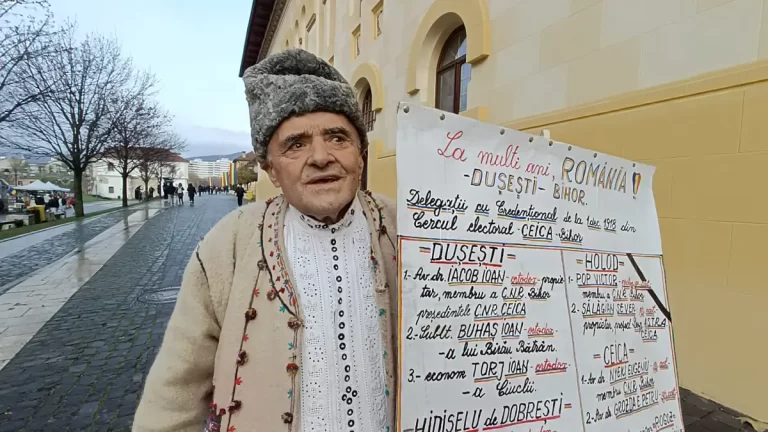 La multi ani, ROMÂNIA!
-DUȘEȘTI- BIHOR.
Delegații cu Credențional de la 1 dec. 1918 din
Cercul electoral -CEICA- Bihor
=DUȘEȘTI=
1.- Av. dr. IACOB IOAN -ortodox- proprie
tar, membru a C.N.R. Bihor
președintele C.N.R. CEICA
2.- Sublt. BUHAȘ IOAN -ortodox-
- a lui Birău Bătrân.
3.- econom TORJ IOAN -ortodox-
- a Ciuclii.
=HIDIȘELU de DOBREȘTI=
=HOLOD=
1.- POP VICTOR
membru a C.N.R. Bihor
2.- SĂLĂGIAN
SEVER
proprietar, președ.
ASTRA
CEICA
=CEICA=
1.- Av. dr.
EUGENIU
membru C.N.R. Bihor
2.- Av. dr. GROZDA PETRU